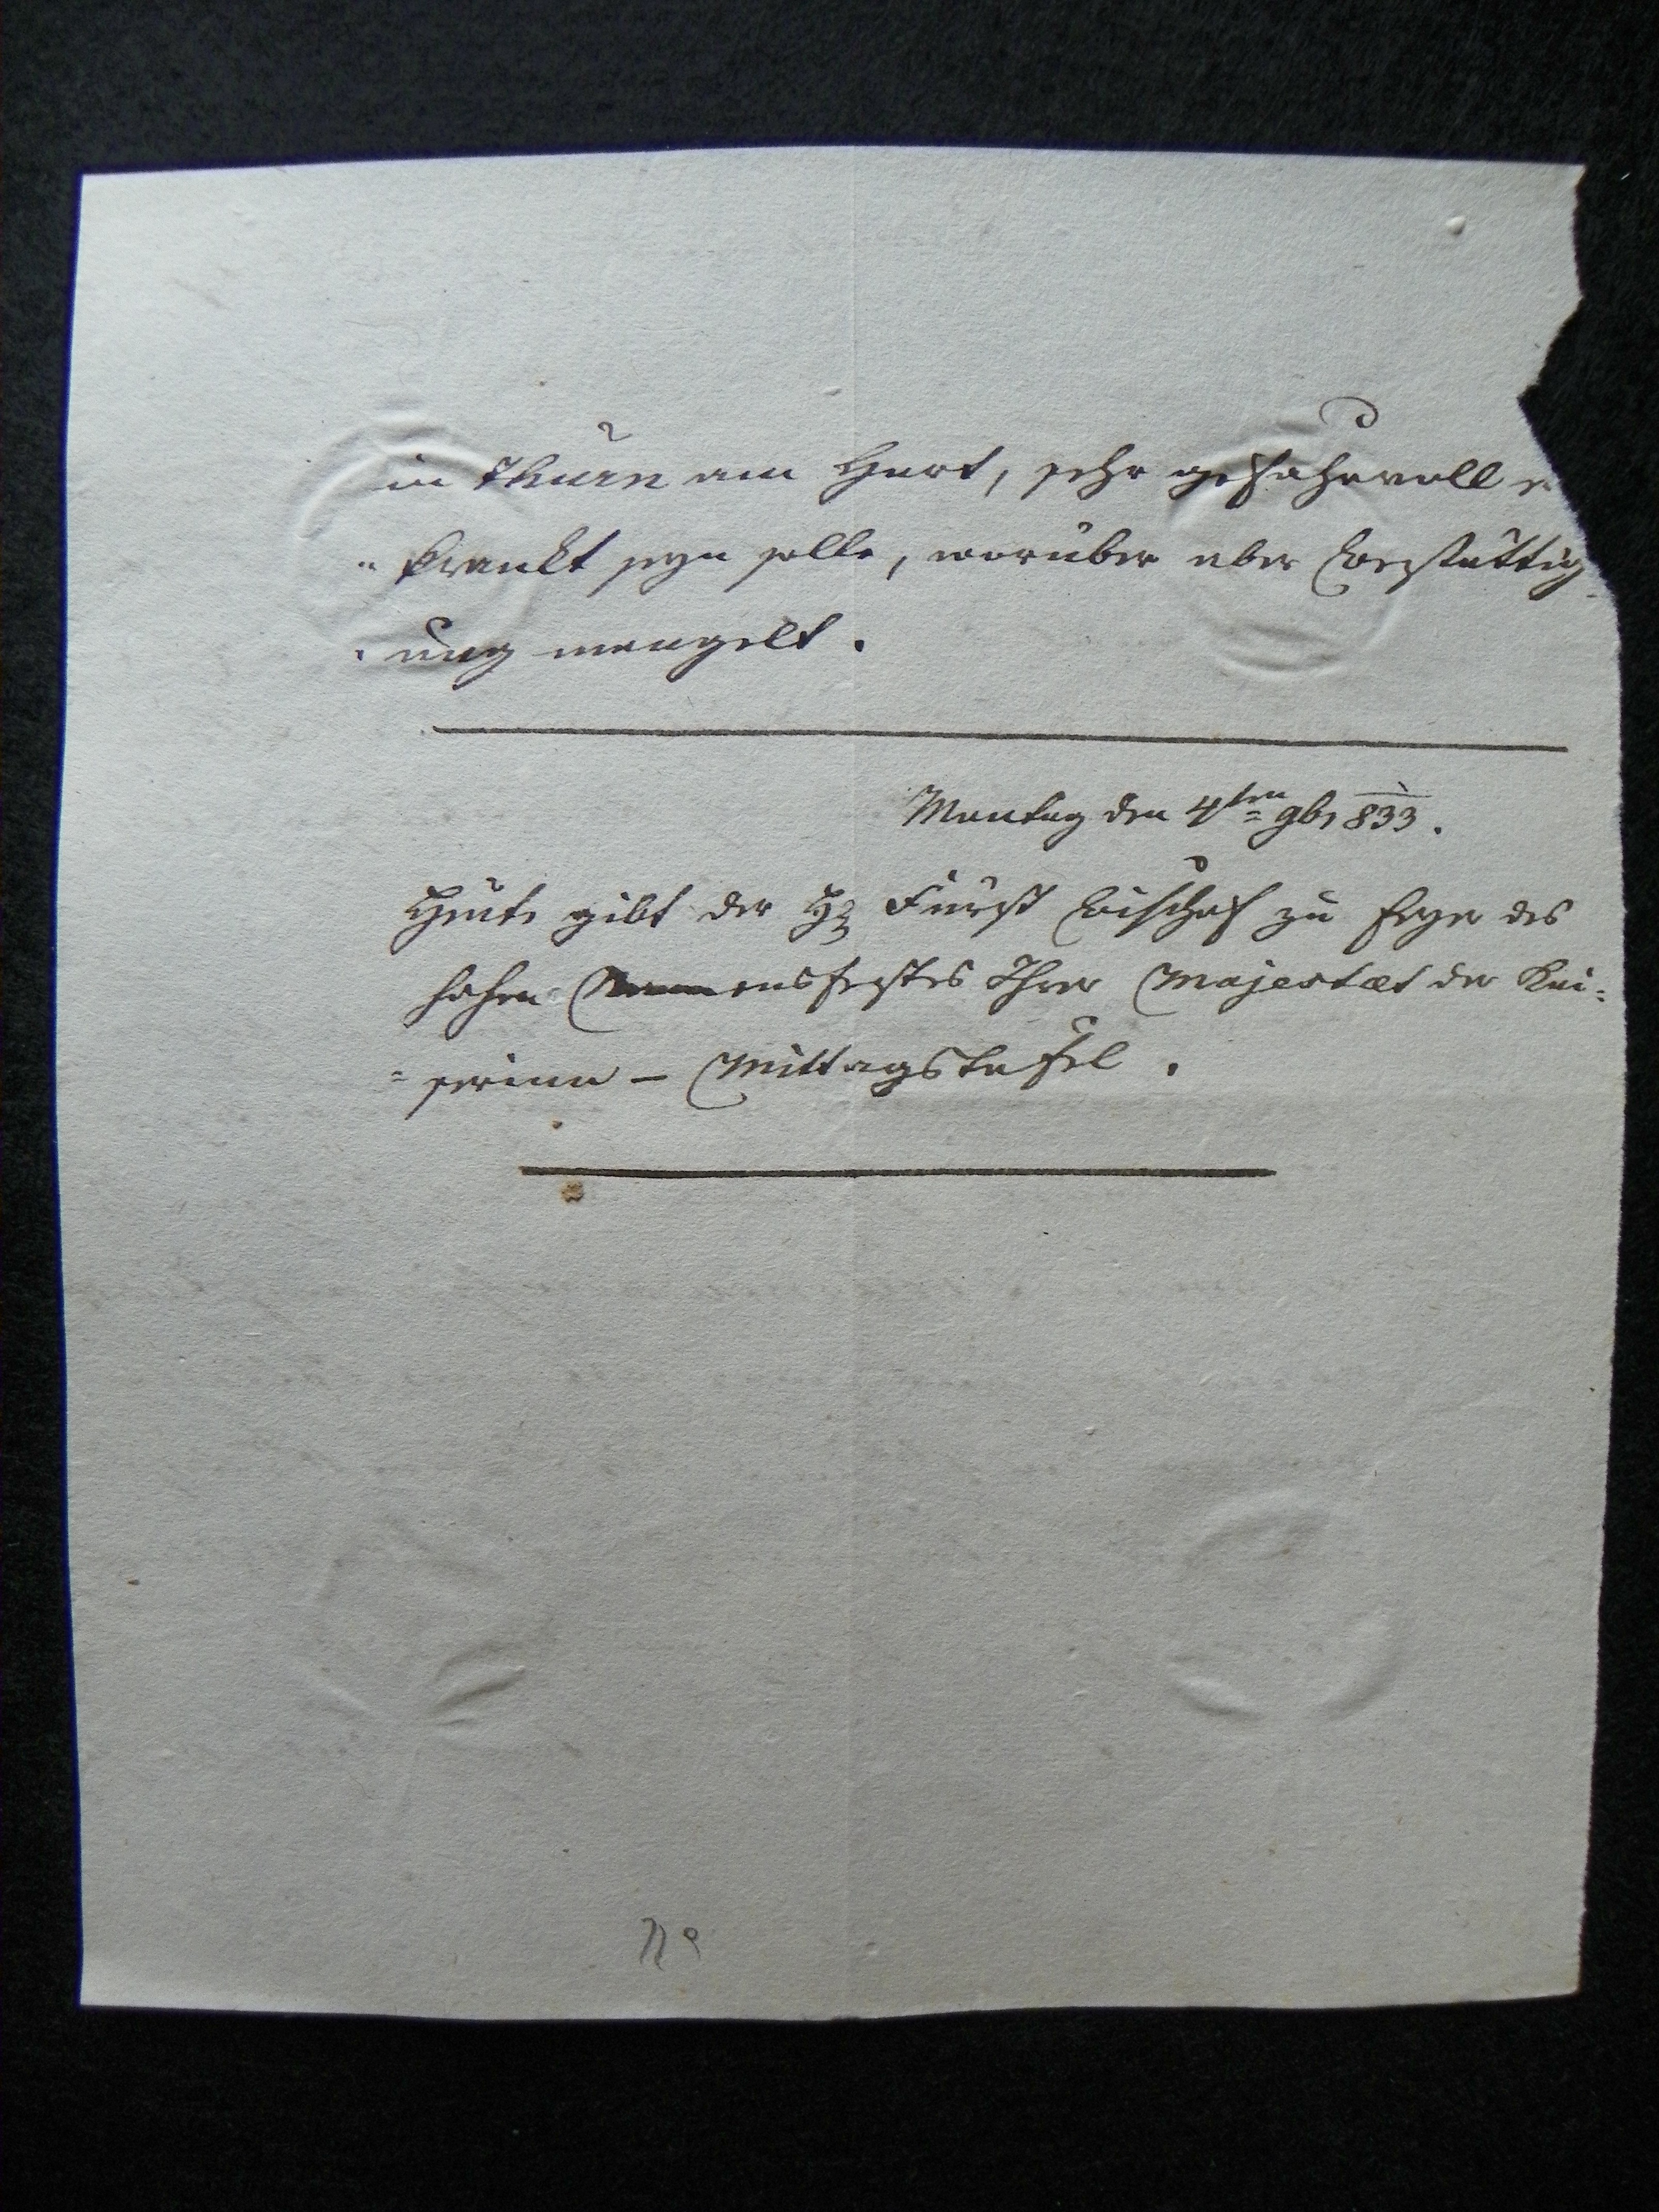 in Thurn am Hart, sehr gefahrvoll er
„krankt seyn solle, worüber aber Bestättig
„ung mangelt.
Montag den 4ten 9b, 833.
Heute gibt der H Fürst Bischof zu Feyer des
hohen Namensfestes Ihrer Majestæt der Kai=
=serinn – Mittagstafel.